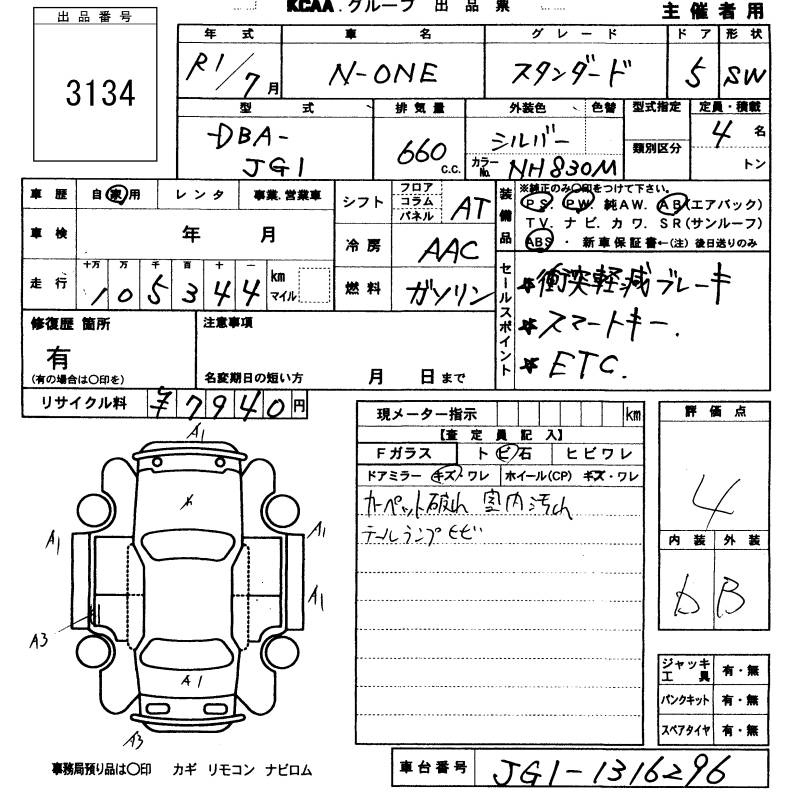 KCAA.グループ 出品票
主催者用
出品番号
3134
年式 車名 グレード ドア 形状
R1/7月 N-ONE スタンダード 5 SW
型式 排気量 外装色 色替 型式指定 定員・積載
DBA-JG1 660 c.c. シルバー カラーNo. NH830M 類別区分 4名 トン
車歴 自家用 レンタ 事業.営業車
車検 年 月
走行 十万 万 千 百 十 一
105344 km マイル
シフト フロア コラム パネル AT
冷房 AAC
燃料 ガソリン
装備品 ※純正のみ〇印をつけて下さい。
PS. PW. 純AW. AB(エアバック)
TV. ナビ. カワ. SR(サンルーフ)
ABS・新車保証書←(注)後日送りのみ
セールスポイント
☆衝突軽減ブレーキ
☆スマートキー.
☆ETC.
修復歴 箇所
有
(有の場合は〇印を)
注意事項
名変期日の短い方 月 日まで
リサイクル料 ¥7940円
現メーター指示 km
【査定員記入】
Fガラス トビ石 ヒビワレ
ドアミラー キズ・ワレ ホイール(CP) キズ・ワレ
カーペット破れ 室内汚れ
テールランプヒビ
評価点
4
内装 外装
D B
A1
A1
A1
A1
A3
A1
A3
ジャッキ工具 有・無
パンクキット 有・無
スペアタイヤ 有・無
事務局預り品は〇印 カギ リモコン ナビロム
車台番号 JG1-1316296